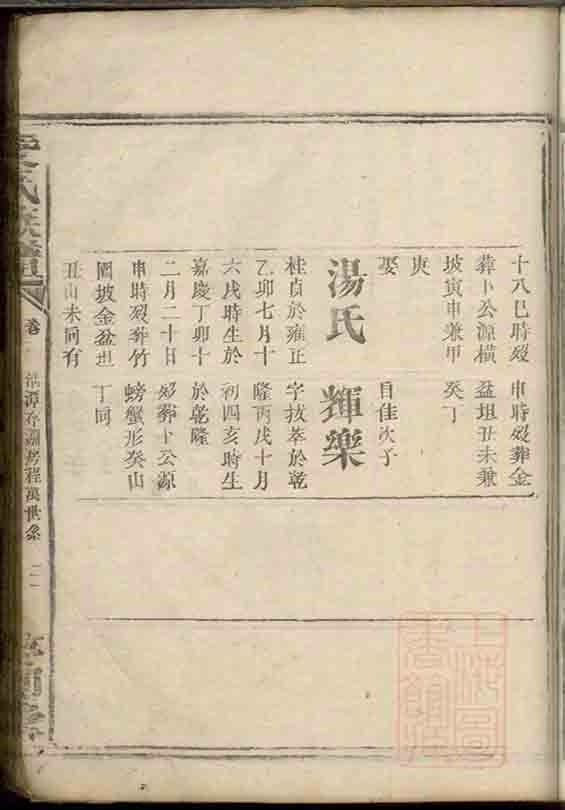 十八巳時歿
葬卜公源橫
坡寅申兼甲
庚
娶
湯氏
桂貞於雍正
乙卯七月十
六戌時生於
嘉慶丁卯十
二月二十日
申時歿葬竹
園坡金盆坦
丑山未向有
申時歿葬金
盆坦丑未兼
癸丁
自佳次子
輝樂
字拔萃於乾
隆丙戌十月
初四亥時生
於乾隆
歿葬卜公源
螃蟹形癸山
丁向
氏族譜
卷
潭存淵房程萬世系
上海圖
書館藏